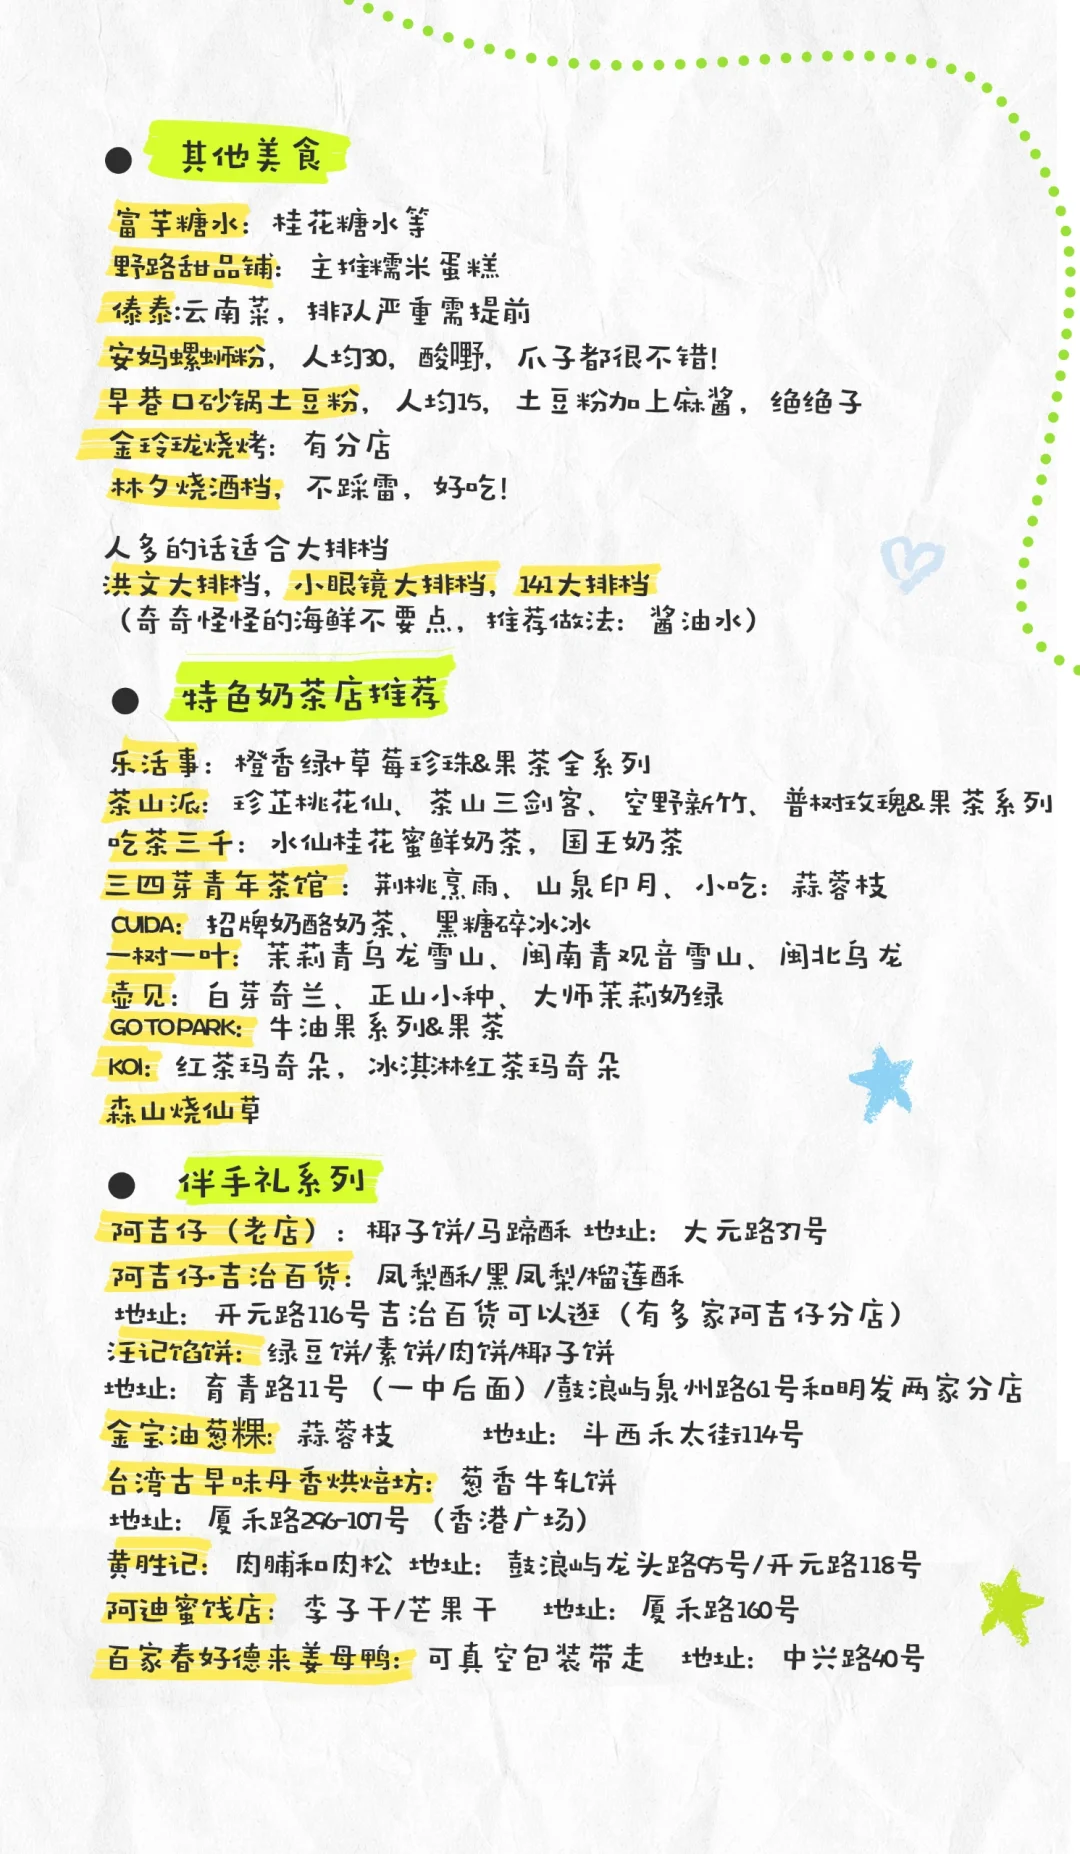 其他美食
富芋糖水：桂花糖水等
野路甜品铺：主推糯米蛋糕
傣泰:云南菜，排队严重需提前
安妈螺蛳粉，人均30，酸嘢，爪子都很不错！
早巷口砂锅土豆粉，人均15，土豆粉加上麻酱，绝绝子
金玲珑烧烤：有分店
林夕烧酒档，不踩雷，好吃！
人多的话适合大排档
洪文大排档，小眼镜大排档，141大排档
（奇奇怪怪的海鲜不要点，推荐做法：酱油水）
特色奶茶店推荐
乐活事：橙香绿+草莓珍珠&果茶全系列
茶山派：珍芷桃花仙、茶山三剑客、空野新竹、普树玫瑰&果茶系列
吃茶三千：水仙桂花蜜鲜奶茶，国王奶茶
三四芽青年茶馆：荆桃烹雨、山泉印月、小吃：蒜蓉枝
CUIDA：招牌奶酪奶茶、黑糖碎冰冰
一树一叶：茉莉青乌龙雪山、闽南青观音雪山、闽北乌龙
壶见：白芽奇兰、正山小种、大师茉莉奶绿
GOTOPARK：牛油果系列&果茶
KOI：红茶玛奇朵，冰淇淋红茶玛奇朵
森山烧仙草
伴手礼系列
阿吉仔（老店）：椰子饼/马蹄酥 地址：大元路37号
阿吉仔·吉治百货：凤梨酥/黑凤梨/榴莲酥
地址：开元路116号吉治百货可以逛（有多家阿吉仔分店）
汪记馅饼：绿豆饼/素饼/肉饼/椰子饼
地址：育青路11号（一中后面）/鼓浪屿泉州路61号和明发两家分店
金宝油葱粿：蒜蓉枝 地址：斗西禾太街114号
台湾古早味丹香烘焙坊：葱香牛轧饼
地址：厦禾路296-107号（香港广场）
黄胜记：肉脯和肉松 地址：鼓浪屿龙头路95号/开元路118号
阿迪蜜饯店：李子干/芒果干 地址：厦禾路160号
百家春好德来姜母鸭：可真空包装带走 地址：中兴路40号